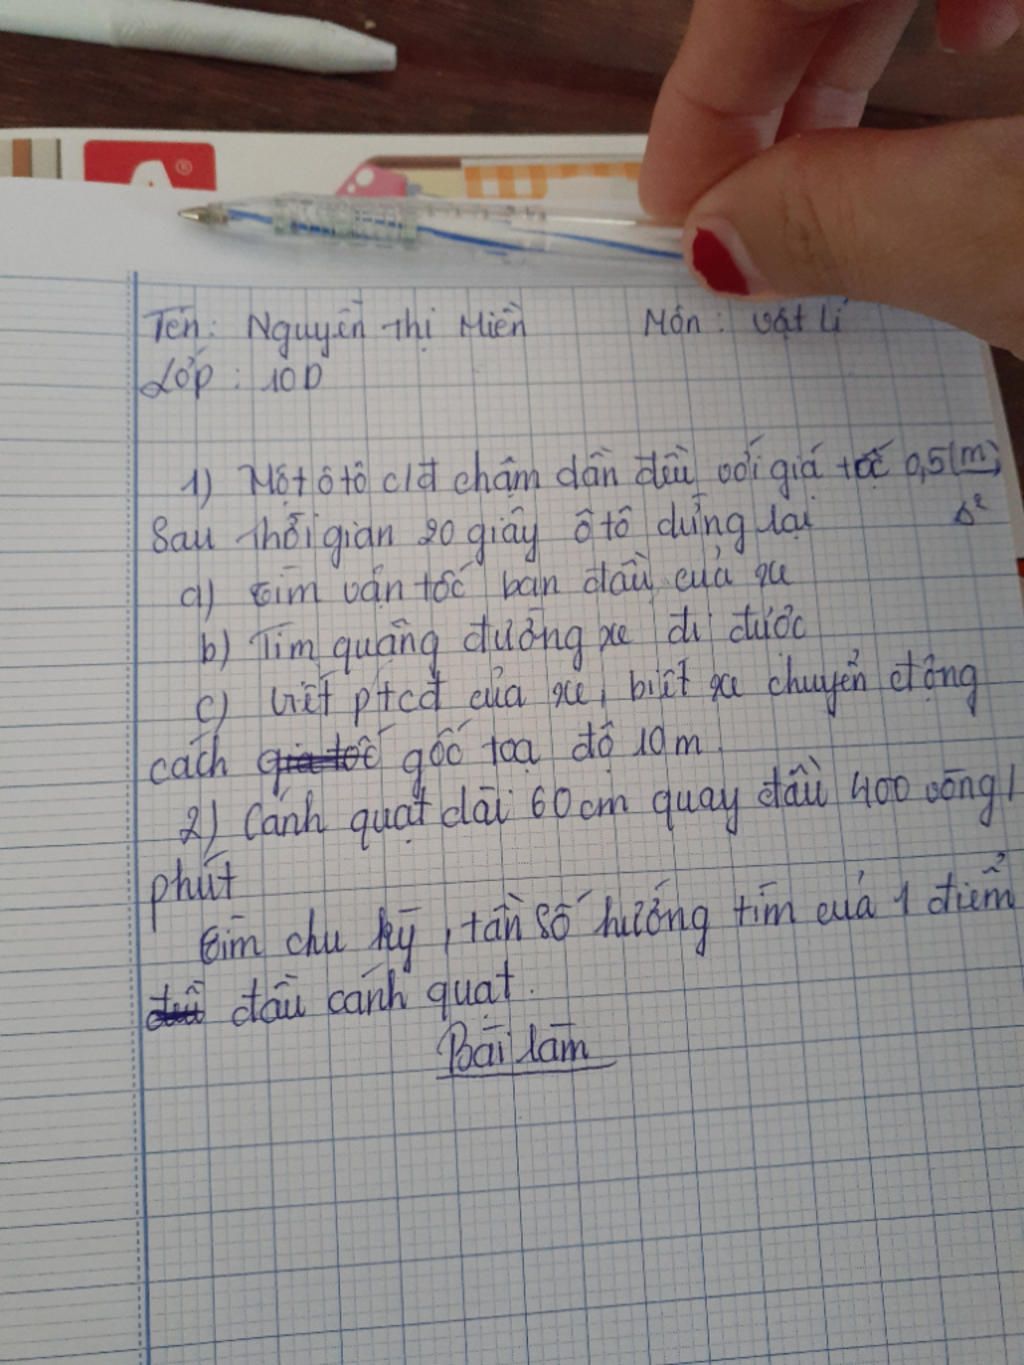 Tên: Nguyễn Thị Miền Môn: Vật Lí
Lớp: 10D
1) Một ô tô c/đ chậm dần đều với giá tốc 0,5(m/s²)
Sau thời gian 20 giây ô tô dừng lại
a) tìm vận tốc ban đầu của xe
b) Tìm quãng đường xe đi được
c) viết ptcđ của xe, biết xe chuyển động
cách gốc toạ độ 10m
2) Cánh quạt dài 60cm quay đầu 400 vòng/
phút
tìm chu kỳ, tần số hướng tím của 1 điểm
đầu cánh quạt.
Bài làm